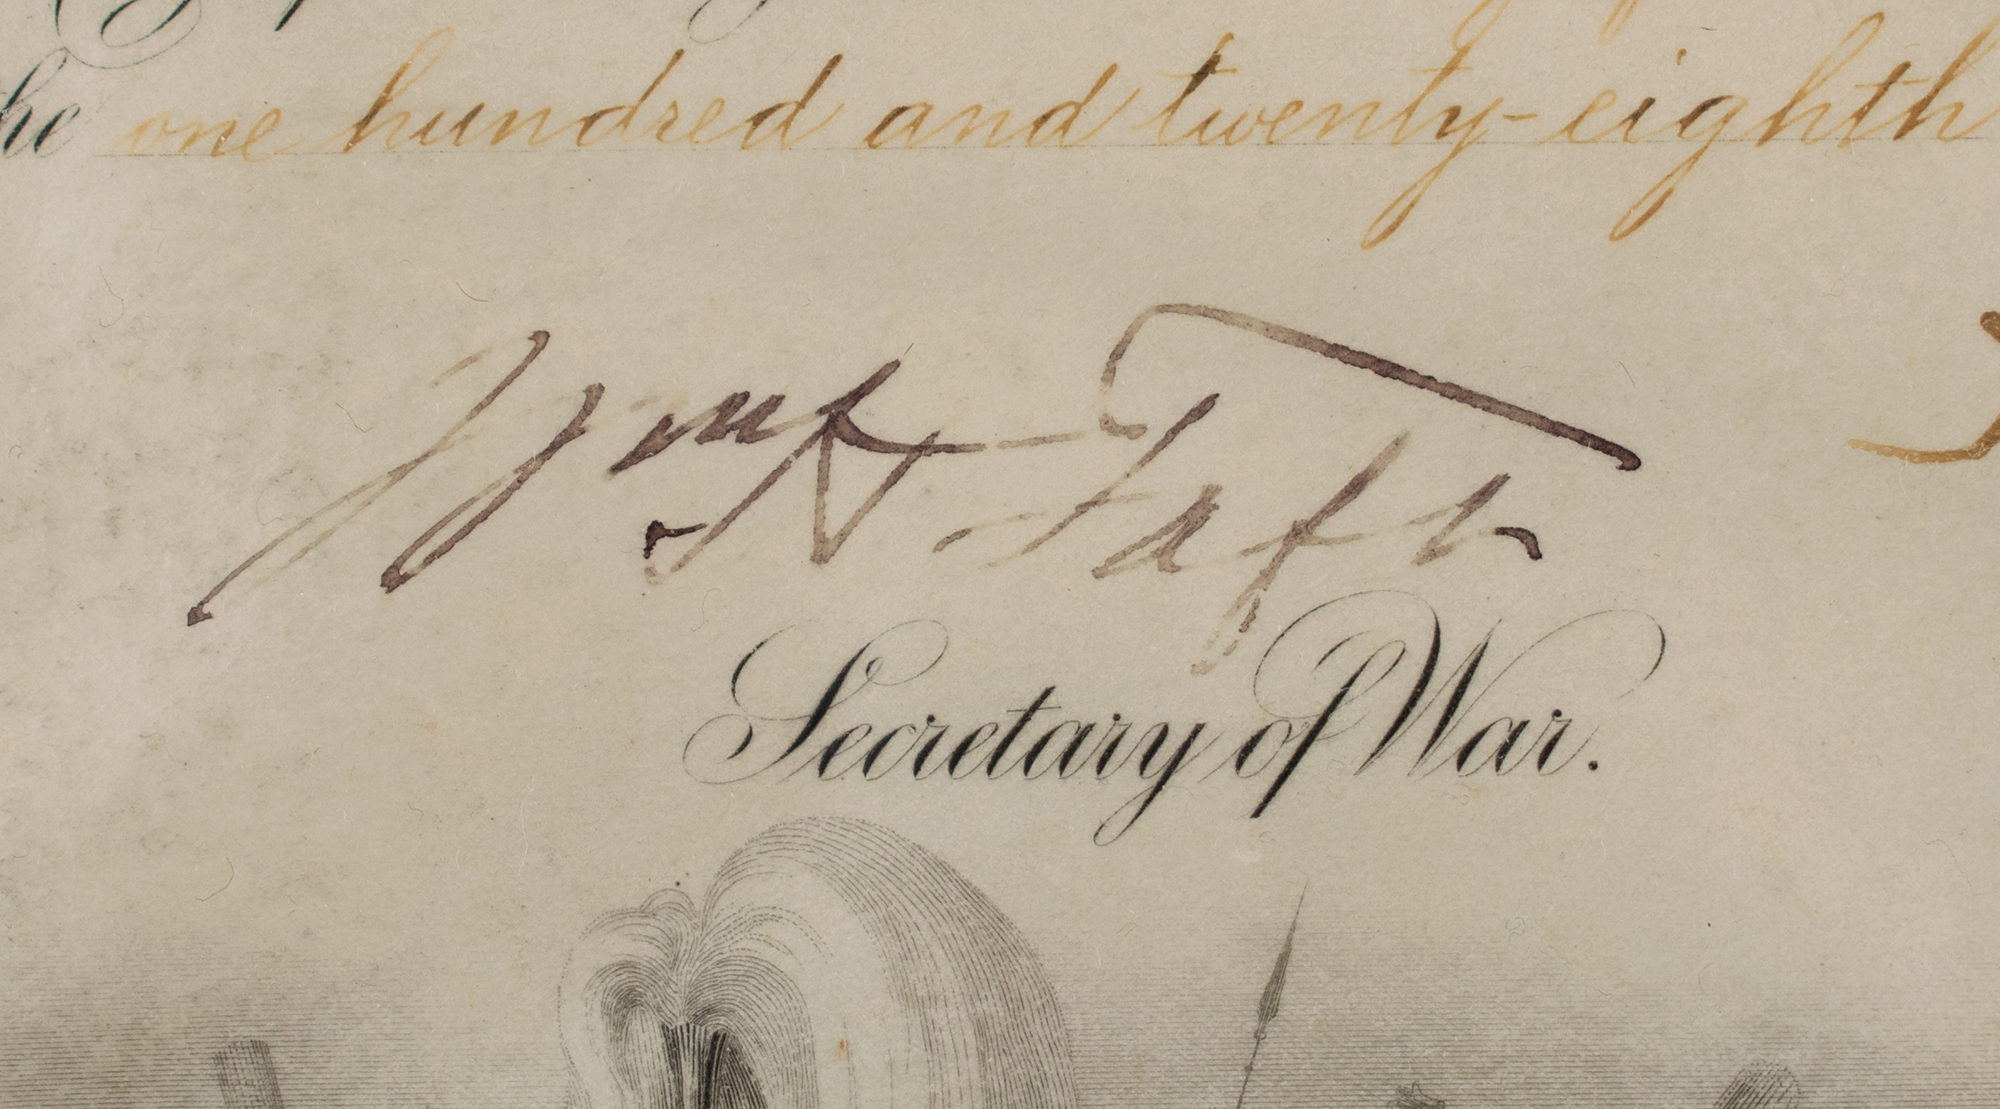 he one hundred and twenty-eighth
Wm H Taft
Secretary of War.